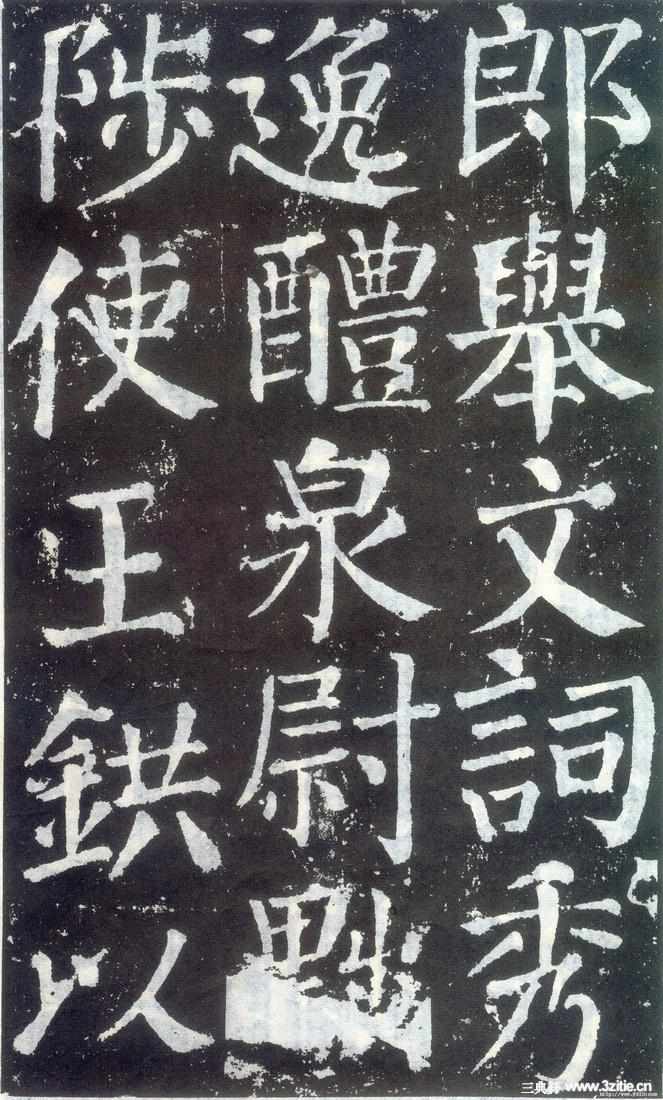 郎舉文詞秀
逸醴泉尉黜
陟使王鉷以
三典轩 www.3zitie.cn